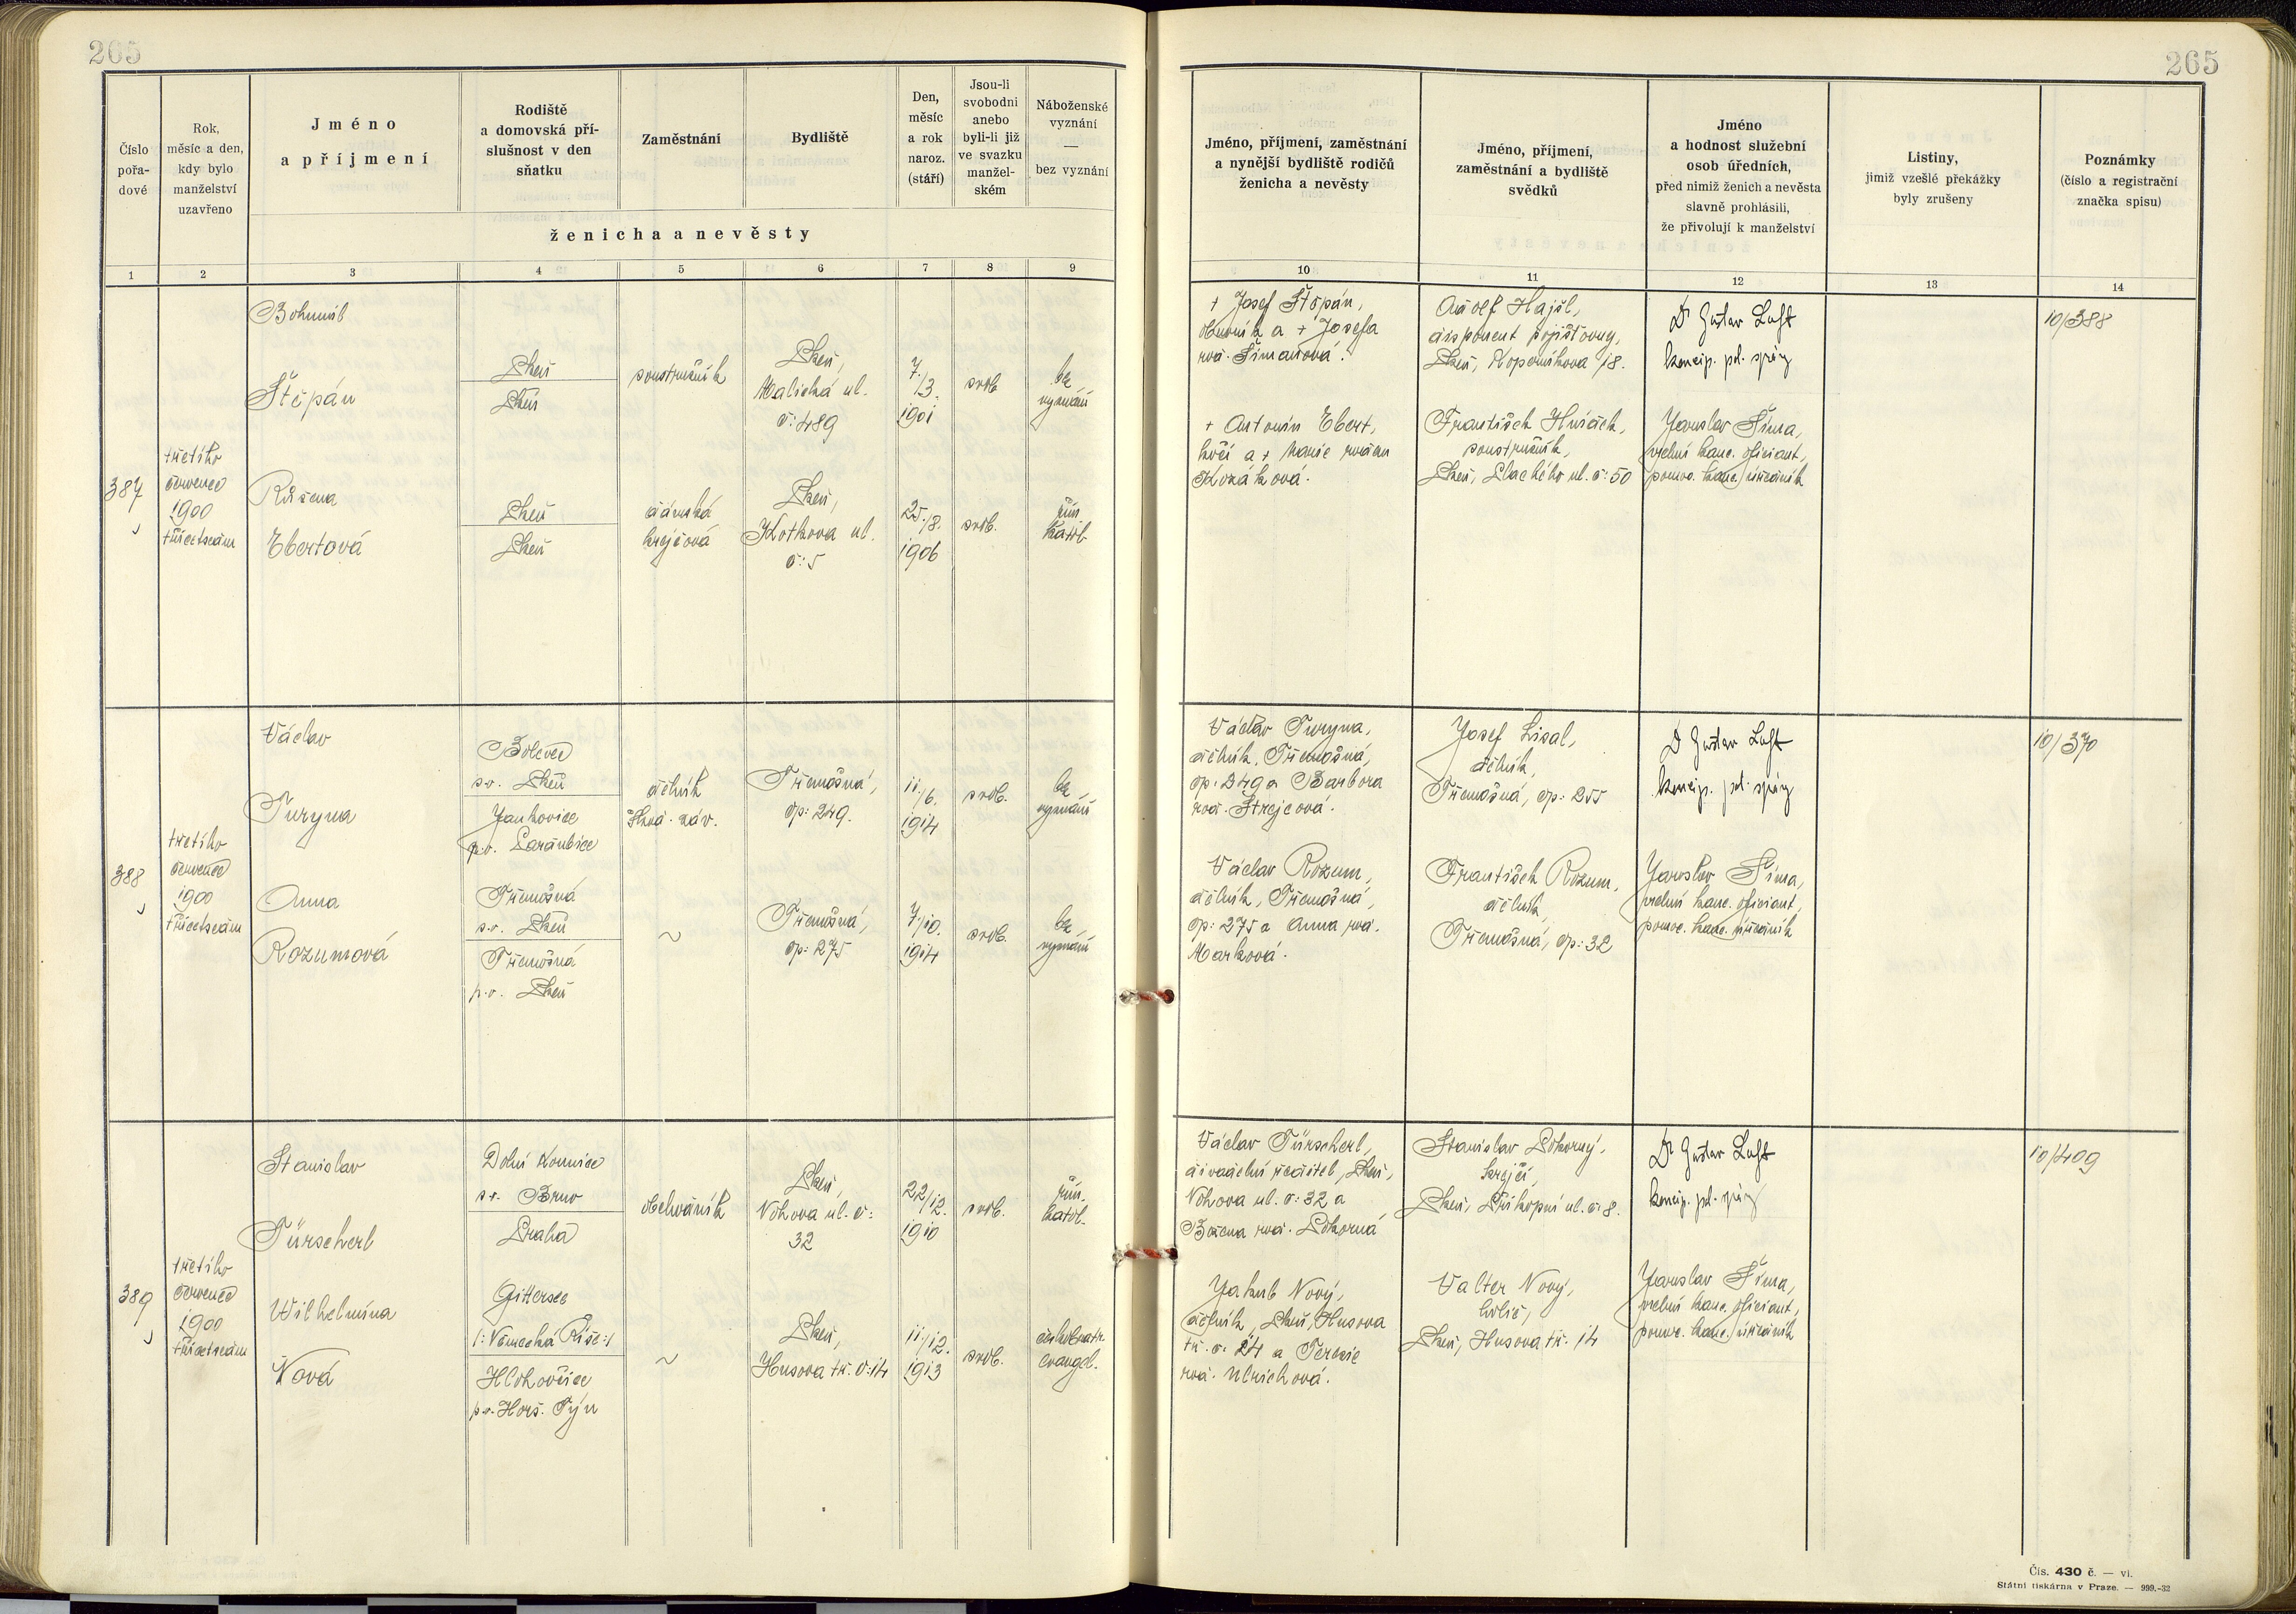 265
265
Číslo
pořa-
dové
Rok,
měsíc a den,
kdy bylo
manželství
uzavřeno
Jméno
a příjmení
Rodiště
a domovská pří-
slušnost v den
sňatku
Zaměstnání
Bydliště
Den,
měsíc
a rok
naroz.
(stáří)
Jsou-li
svobodni
anebo
byli-li již
ve svazku
manžel-
ském
Náboženské
vyznání
—
bez vyznání
ženicha a nevěsty
Jméno, příjmení, zaměstnání
a nynější bydliště rodičů
ženicha a nevěsty
Jméno, příjmení,
zaměstnání a bydliště
svědků
Jméno
a hodnost služební
osob úředních,
před nimiž ženich a nevěsta
slavně prohlásili,
že přivolují k manželství
Listiny,
jimiž vzešlé překážky
byly zrušeny
Poznámky
(číslo a registrační
značka spisu)
1 2 3 4 5 6 7 8 9 10 11 12 13 14
387
třetího
červenec
1900
třicetsedm
Bohumil
Štěpán
Plzeň
Plzeň
soustružník
Plzeň,
Malická ul.
č: 489
7./3.
1901
svob.
bez
vyznání
Růžena
Ebertová
Plzeň
Plzeň
dámská
krejčová
Plzeň,
Klotkova ul.
č: 5
25./8.
1906
svob.
řím.
kathol.
+ Josef Štěpán,
obuvník a + Josefa
roz. Šimanová.
+ Antonín Ebert,
kočí a + Marie rozen
Kozáková.
Adolf Hajšl,
disponent pojišťovny,
Plzeň, Koperníkova 18.
František Hnídek,
soustružník,
Plzeň, Plachého ul. č: 50
Dr Gustav Luft
koncip. pol. správy
Jaroslav Šíma,
vrchní kanc. oficiant,
pomoc. kanc. úředník
10/388
388
třetího
červenec
1900
třicetsedm
Václav
Turyna
Bolevec
s.o. Plzeň
Jankovice
p.o. Pardubice
dělník
Škod. záv.
Třemošná,
čp: 249.
11./6.
1914
svob.
bez
vyznání
Anna
Rozumová
Třemošná
s.o. Plzeň
Třemošná
p.o. Plzeň
~
Třemošná,
čp: 275
7./10.
1914
svob.
bez
vyznání
Václav Turyna,
dělník, Třemošná,
čp. 249 a Barbora
roz. Strejcová.
Václav Rozum,
dělník, Třemošná,
čp: 275 a Anna roz.
Marková.
Josef Lisal,
dělník,
Třemošná, čp: 255
František Rozum,
dělník,
Třemošná, čp: 32
Dr Gustav Luft
koncip. pol. správy
Jaroslav Šíma,
vrchní kanc. oficiant,
pomoc. kanc. úředník
10/370
389
třetího
červenec
1900
třicetsedm
Stanislav
Türscherl
Dolní Kounice
s.o. Brno
Praha
obchodník
Plzeň,
Nohova ul. č:
32
22/12.
1910
svob.
řím.
kathol.
Wilhelmina
Nová
Gittersee
/:Německá Říše:/
Hlohovčice
p.o. Horš. Týn
~
Plzeň,
Husova tř. č: 14
11/12.
1913
svob.
evangel.
Václav Türscherl,
divadelní ředitel, Plzeň,
Nohova ul. č: 32 a
Božena roz. Pokorná
Jakub Nový,
dělník, Plzeň, Husova
tř. č: 24 a Terezie
roz. Ulrichová.
Stanislav Pokorný,
krejčí,
Plzeň, Příkopní ul. č: 8.
Valter Nový,
holič,
Plzeň, Husova tř. 14
Dr Gustav Luft
koncip. pol. správy
Jaroslav Šíma,
vrchní kanc. oficiant,
pomoc. kanc. úředník
10/409
Čís. 430 č. — vi.
Státní tiskárna v Praze. — 999.-32